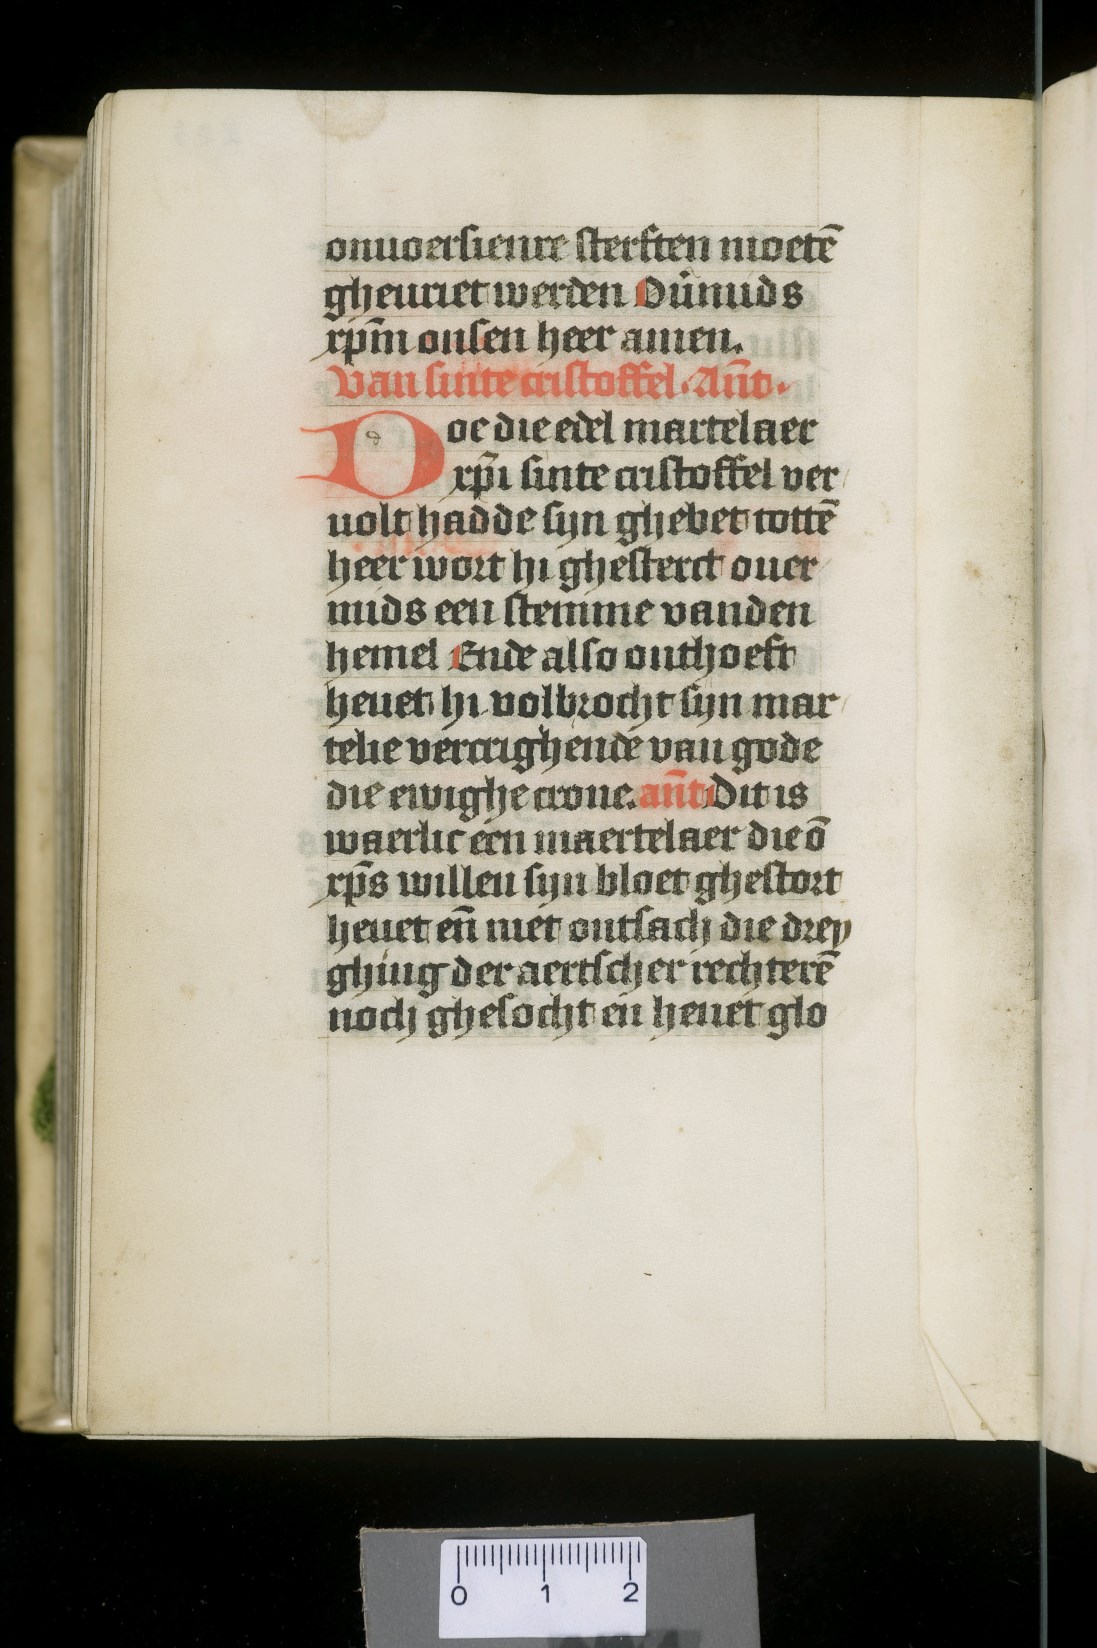 onuoersienre sterften moetē
gheuriet werden Ouͥmids
xp̄m onsen heer amen.
Van sinte cristoffel. An̄t.
Doe die edel martelaer
xp̄i sinte cristoffel ver
uolt hadde syn ghebet totte̅
heer wort hi ghesterct ouer
mids een stemme vanden
hemel Ende also onthoeft
heuet hi volbrocht syn mar
telie vercrighende van gode
die ewighe crone. an̄t Dit is
waerlic een maertelaer die ō
xp̄s willen syn bloet ghestort
heuet en̄ niet ontsach die drey
ghing der aertscher rechterē
noch ghesocht en heuet glo
0 1 2